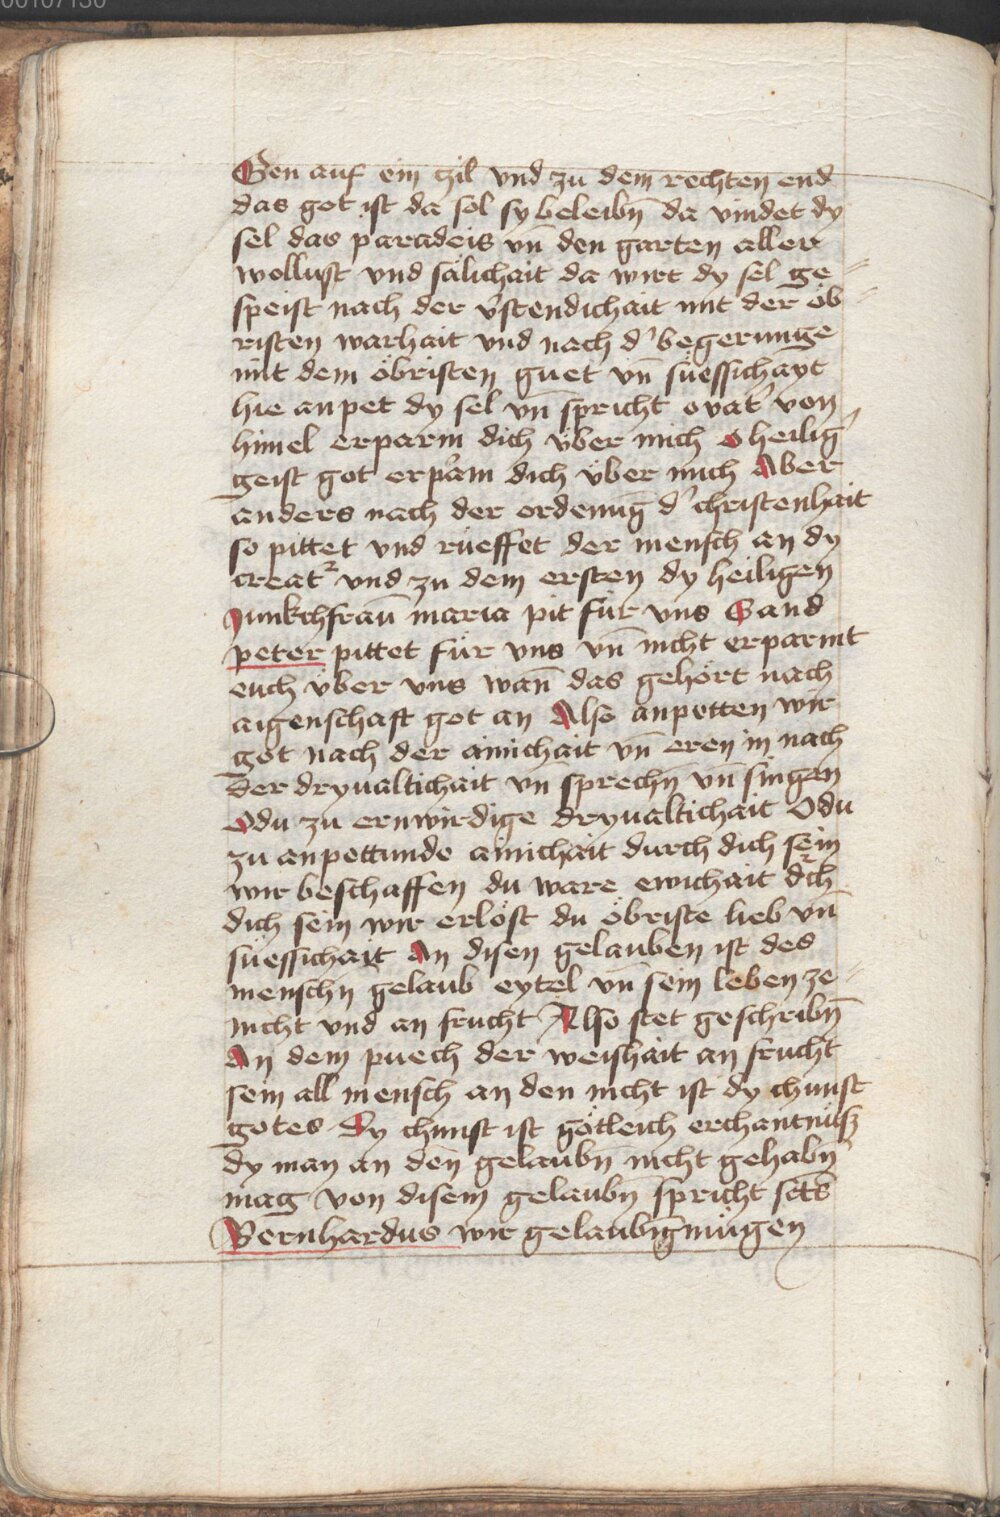 00107130
Gen auf ein zil vnd zu dem rechten end
das got ist da sol sy beleibn̄ da vindet dy
sel das paradeis vn̄ den garten aller
wollust vnd sälichait da wirt dy sel ge⸗
speist nach der v̓stendichait mit der öb⸗
risten warhait vnd nach d̓ begerunge
mit dem öbristen guet vn̄ süessichayt
hie anpet dy sel vn̄ spricht o vat̓ von
himel erparm dich vber mich o heilig̓
geist got erparm dich vber mich Aber
anders nach der ordenūg d̓ christenhait
so pittet vnd rüeffet der mensch an dy
creatꝛ vnd zu dem ersten dy heiligen
Junkchfraw̄ maria pit für vns Sand
peter pittet für vns vn̄ nicht erparmt
euch vber vns wan̄ das gehört nach
aigenschaft got an Also anpetten wir
got nach der ainichait vn̄ eren in nach
der dryualtichait vn̄ sprechn̄ vn̄ singen
O du zu ernwirdige dryualtichait O du
zu anpettunde ainichait durch dich sein
wir beschaffen du ware ewichait dꝛch
dich sein wir erlöst du öbriste lieb vn̄
süessichait An disen gelauben ist des
menschn̄ gelaub eytel vn̄ sein leben ze⸗
nicht vnd an frucht Also stet geschribn̄
An dem puech der weishait an frucht
sein all mensch an den nicht ist dy chunst
gotes Dy chunst ist götleich erchantnüsz
dy man an den gelaubn̄ nicht gehabn̄
mag von disem gelaubn̄ spricht scts̄
Bernhardus wir gelaubig mügen